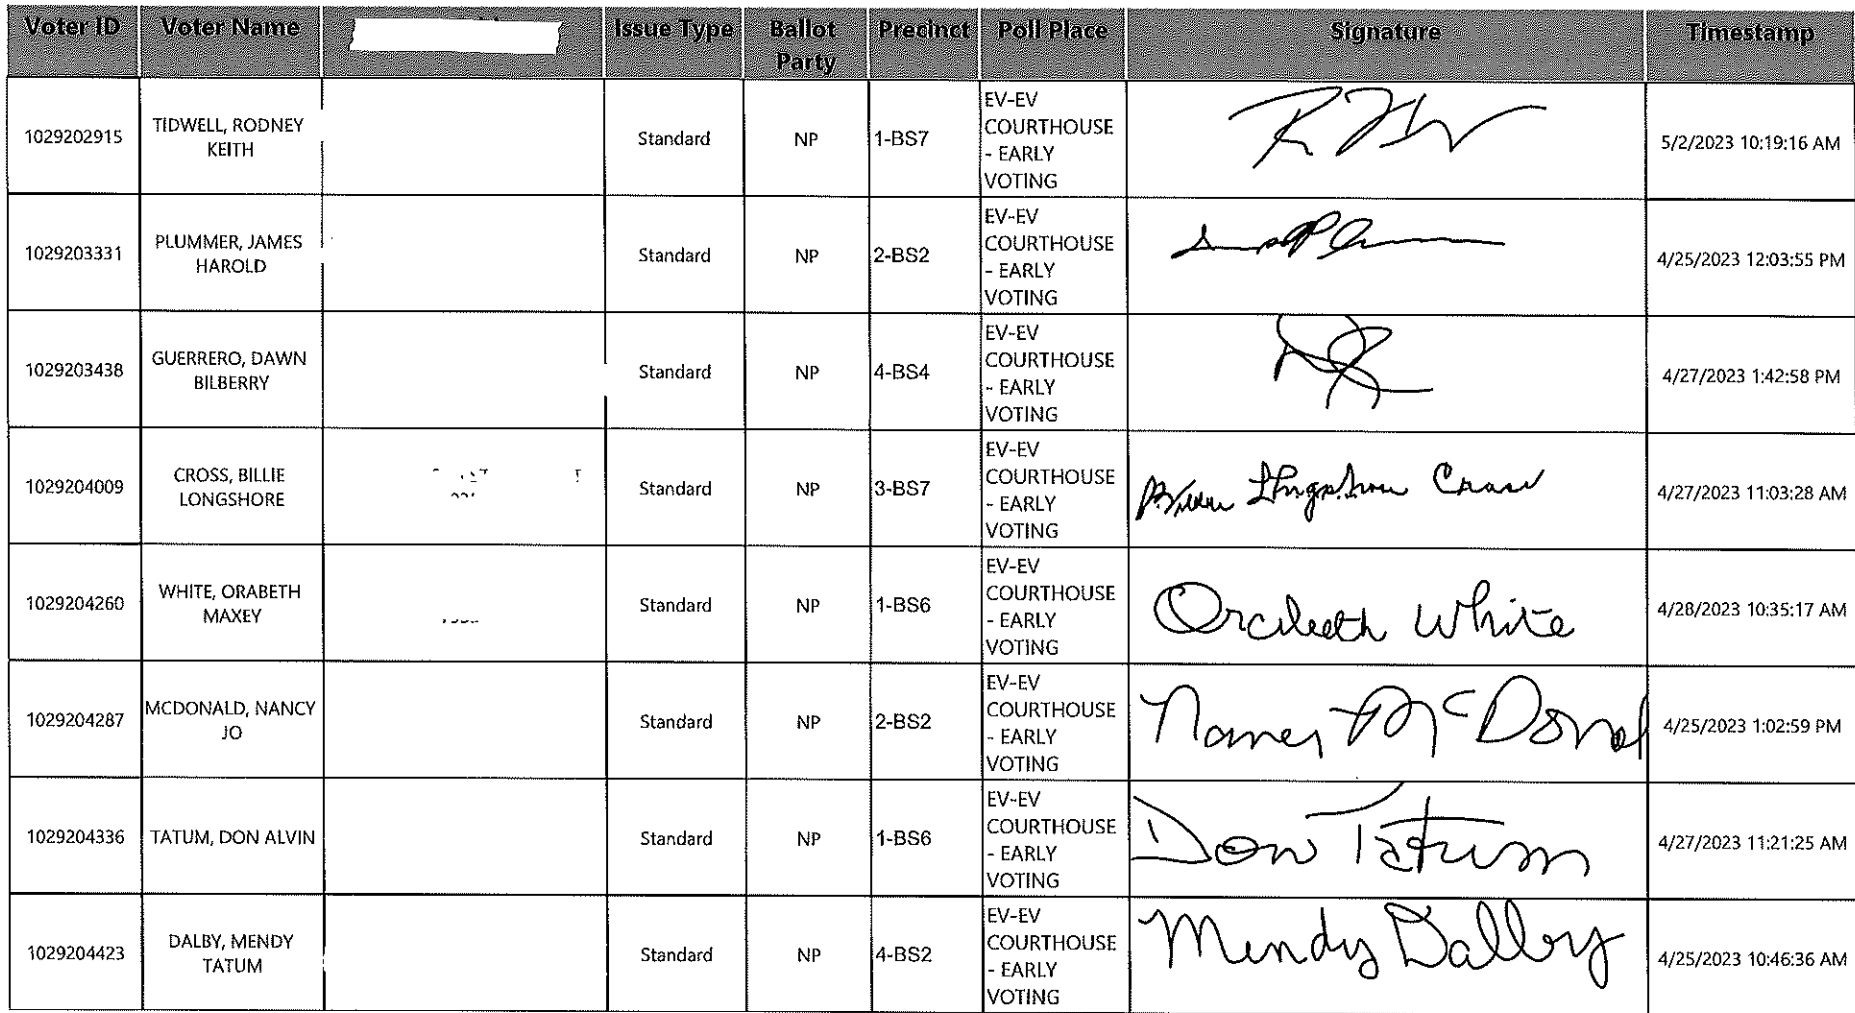 Voter ID Voter Name Issue Type Ballot Party Precinct Poll Place Signature Timestamp
1029202915 TIDWELL, RODNEY KEITH Standard NP 1-BS7 EV-EV COURTHOUSE - EARLY VOTING 5/2/2023 10:19:16 AM
1029203331 PLUMMER, JAMES HAROLD Standard NP 2-BS2 EV-EV COURTHOUSE - EARLY VOTING 4/25/2023 12:03:55 PM
1029203438 GUERRERO, DAWN BILBERRY Standard NP 4-BS4 EV-EV COURTHOUSE - EARLY VOTING 4/27/2023 1:42:58 PM
1029204009 CROSS, BILLIE LONGSHORE Standard NP 3-BS7 EV-EV COURTHOUSE - EARLY VOTING Billie Longshore Cross 4/27/2023 11:03:28 AM
1029204260 WHITE, ORABETH MAXEY Standard NP 1-BS6 EV-EV COURTHOUSE - EARLY VOTING Orabeth White 4/28/2023 10:35:17 AM
1029204287 MCDONALD, NANCY JO Standard NP 2-BS2 EV-EV COURTHOUSE - EARLY VOTING Nancy McDonal 4/25/2023 1:02:59 PM
1029204336 TATUM, DON ALVIN Standard NP 1-BS6 EV-EV COURTHOUSE - EARLY VOTING Don Tatum 4/27/2023 11:21:25 AM
1029204423 DALBY, MENDY TATUM Standard NP 4-BS2 EV-EV COURTHOUSE - EARLY VOTING Mendy Dalby 4/25/2023 10:46:36 AM